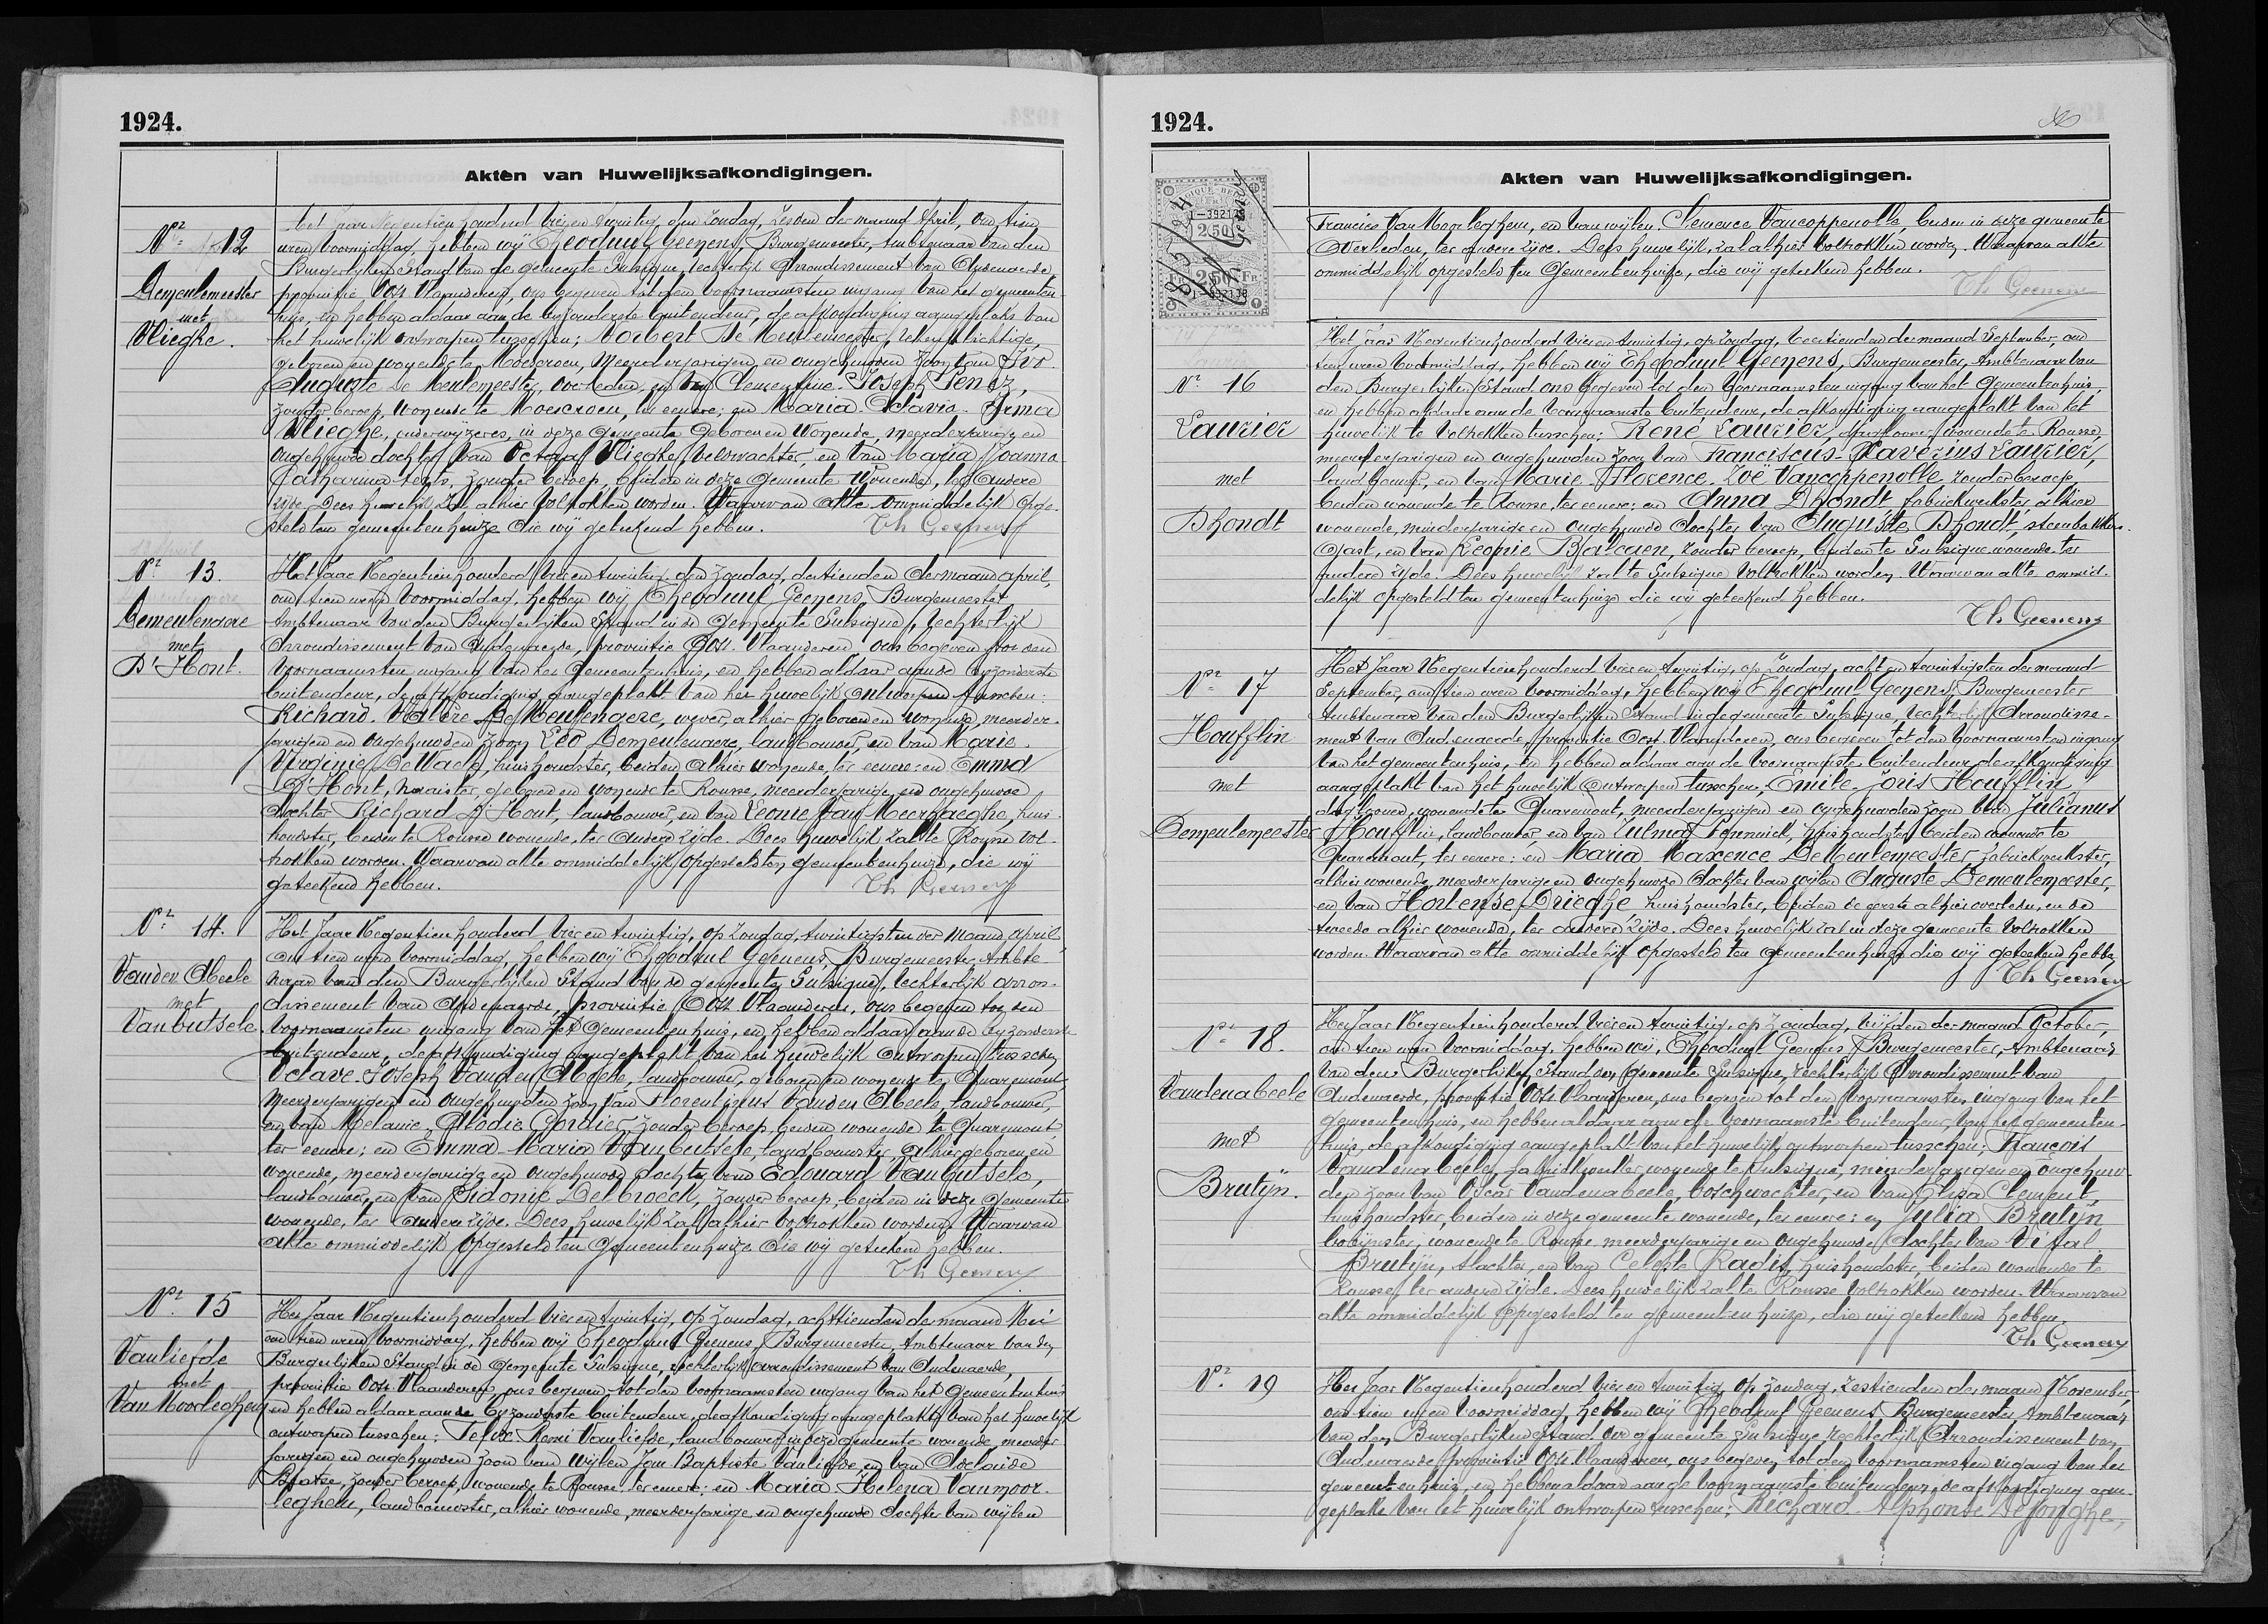 1924.
Akten van Huwelijksafkondigingen.
Nr 12
Demeulemeester
met
Vlieghe.
Het Jaar Negentien honderd vier en twintig, den Zondag, zesden der maand April, om tien
uren voormiddag, hebben wij Theoduul Geenens, Burgemeester, Ambtenaar van den
Burgerlijken Stand van de gemeente Sulsique, rechterlijk Arrondissement van Audenaerde
provintie Oost Vlaanderen, ons begeven tot den voornaamsten ingang van het gemeenten
huis, en hebben aldaar aan de bijzonderste buitendeur, de afkondiging aangeplakt van
het huwelijk ontworpen tusschen; Norbert De Meulemeester,
geboren en wonende te Moescroen, meerderjarigen en ongehuwden zoon van Ivo
Auguste De Meulemeester, overleden, en van Clementine Joseph
zonder beroep, wonende te Moescroen, ter eenere; en Maria Octavia Irma
Vlieghe, onderwijzeres, in deze Gemeente Geboren en Wonende, meerderjarige en
ongehuwde dochter van Octaaf Vlieghe, veldwachter, en van Maria Joanna
Catharina zonder beroep, beiden in deze Gemeente Wonende, ter andere
zijde. Dees huwelijk zal alhier voltrokken worden. Waarvan Akte ommiddelijk Opge-
steld ten gemeentenhuize die wij geteekend hebben. Th Geenens
13 April
Nr 13.
Demeulenaere
met
D'Hont.
Het Jaar Negentien honderd vier en twintig, den Zondag, dertienden der maand april,
om tien uren voormiddag, hebben wij Theoduul Geenens, Burgemeester
Ambtenaar van den Burgerlijken Stand in de Gemeente Sulsique, rechterlijk
Arroudissement van Audenaerde, provintie Oost Vlaanderen ons begeven tot den
voornaamsten ingang van het Gemeentenhuis, en hebben aldaar aan de bijzonderste
buitendeur, de afkondiging aangeplakt van het huwelijk Ontworpen tusschen:
Richard Valère De Meulenaere, wever, alhier geboren en wonende, meerder-
jarigen en ongehuwden zoon Leo Demeulenaere, landbouwer, en van Marie
Virginie De Waele, huishoudster, beiden alhier wonende, ter eenere: en Emma
D'Hont, naaister, geboren en wonende te Rousse, meerderjarige en ongehuwde
dochter Richard D'Hont, landbouwer, en van Leonie Van Meerhaeghe, huis-
houdster, beiden te Rousse wonende, ter Andere zijde. Dees huwelijk zal te Rousse vol-
trokken worden. Waarvan akte ommiddelijk Opgesteld ten gemeentenhuize, die wij
geteekend hebben. Th Geenens
Nr 14.
Vanden Abeele
met
Vanbutsele.
Het Jaar Negentien honderd vier en twintig, op Zondag, twintigsten der Maand april
om tien uren voormiddag, hebben wij Theoduul Geenens, Burgemeester, Ambte
naar van den Burgerlijken Stand van de gemeente Sulsique, rechterlijk arron-
dissement van Audenaerde, provintie Oost Vlaanderen, ons begeven tot den
voornaamsten ingang van het Gemeentenhuis, en hebben aldaar aan de bijzonderste
buitendeur, de afkondiging aangeplakt van het huwelijk Ontworpen tusschen
Octave Joseph Vanden Abeele, landbouwer, geboren en wonende te Quaremont
Meerderjarigen en ongehuwden zoon van Florentinus Vanden Abeele, landbouwer,
en van Melanie Elodie Gordier, zonder beroep, beiden wonende te Quaremont
ter eenere; en Emma Maria Vanbutsele, landbouwster, alhier geboren en
wonende, meerderjarige en ongehuwde dochter van Edouard Vanbutsele,
landbouwer, en van Sidonie Delbroeck, zonder beroep, beiden in deze Gemeente
wonende, ter Andere zijde. Dees, huwelijk zal alhier voltrokken worden. Waarvan
akte ommiddelijk Opgesteld ten Gemeentenhuize die wij geteekend hebben.
Th Geenens
Nr 15
Vanliefde
met
Van Moorleghem
Het Jaar Negentien honderd vier en twintig, op Zondag, achttienden der maand Mei
om tien uren voormiddag, hebben wij Theoduul Geenens, Burgemeester, Ambtenaar van den
Burgerlijken Stand in de Gemeente Sulsique, rechterlijk arrondissement van Audenaerde,
provintie Oost Vlaanderen, ons begeven tot den voornaamsten ingang van het Gemeentenhuis
en hebben aldaar aan de bijzonderste buitendeur, de afkondiging aangeplakt van het huwelijk
ontworpen tusschen: Felix Remi Vanliefde, landbouwer in deze gemeente wonende, meerder
jarigen en ongehuwden zoon van wijlen Jan Baptiste Vanliefde, en van Adelaide
zonder beroep, wonende te Rousse, ter eenere: en Maria Helena Vanmoor-
leghem, landbouwster, alhier wonende, meerderjarige en ongehuwde dochter van wijlen
1924.
Akten van Huwelijksafkondigingen.
18/5/24
Th Geenens
2.50
Francies Van Moorleghem, en van wijlen Clemence Vancoppenolle, beiden in deze gemeente
Overleden, ter andere zijde. Dees huwelijk zal alhier voltrokken worden. Waarvan akte
ommiddelijk opgesteld ten Gemeentenhuize, die wij geteekend hebben.
Th Geenens
Nr 16
Laurier
met
Dhondt
Het Jaar Negentien honderd vier en twintig, op Zondag, veertienden der maand September, om
tien uren voormiddag, hebben wij Theoduul Geenens, Burgemeester, Ambtenaar van
den Burgerlijken Stand ons begeven tot den voornaamsten ingang van het Gemeentenhuis,
en hebben aldaar aan de voornaamste buitendeur, de afkondiging aangeplakt van het
huwelijk te voltrekken tusschen: René Laurier, wonende te Rousse,
meerderjarigen en ongehuwden zoon van Franciscus Xaverius Laurier,
landbouwer, en van Marie Florence Zoë Vancoppenolle, zonder beroep,
beiden wonende te Rousse, ter eenere: en Anna Dhondt fabriekwerkster alhier
wonende, minderjarige en ongehuwde dochter van Auguste Dhondt, steenbakkers-
gast, en van Leonie Balcaen, zonder beroep, beiden te Sulsique wonende ter
andere zijde. Dees huwelijk zal te Sulsique voltrokken worden. Waarvan akte ommid-
delijk opgesteld ten gemeentenhuize die wij geteekend hebben.
Th Geenens
Nr 17
Houfflin
met
Demeulemeester
Het Jaar Negentien honderd vier en twintig, op Zondag, acht en twintigsten der maand
September, om tien uren voormiddag, hebben wij Theoduul Geenens, Burgemeester
Ambtenaar van den Burgerlijken Stand in de gemeente Sulsique, rechterlijk Arroudisse-
ment van Audenaerde, provintie Oost Vlaanderen, ons begeven tot den voornaamsten ingang
van het gemeentenhuis, en hebben aldaar aan de voornaamste buitendeur de afkondiging
aangeplakt van het huwelijk Ontworpen tusschen, Emile Joris Houfflin
daglooner, wonende te Quaremont, meerderjarigen en ongehuwden zoon van Julianus
Houfflin, landbouwer, en van Zulma huishoudster beiden wonende te
Quaremont, ter eenere: en Maria Maxence De Meulemeester fabriekwerkster,
alhier wonende, meerderjarige en ongehuwde dochter van wijlen Auguste Demeulemeester,
en van Hortense Drieghe huishoudster, beiden de eerste alhier overleden, en de
tweede alhier wonende, ter andere zijde. Dees huwelijk zal in deze gemeente voltrokken
worden. Waarvan akte ommiddelijk opgesteld ten gemeentenhuize die wij geteekend hebben
Th Geenens
Nr 18.
Vandenabeele
met
Brutijn.
Het Jaar Negentien honderd vier en twintig, op Zondag, vijfden der maand October,
om tien uren voormiddag, hebben wij, Theoduul Geenens Burgemeester, Ambtenaar
van den Burgerlijken Stand der gemeente Sulsique, rechterlijk Arroudissement van
Audenaerde, provintie Oost Vlaanderen, ons begeven tot den voornaamsten ingang van het
gemeentenhuis, en hebben aldaar aan de voornaamste buitendeur, van het gemeenten-
huis, de afkondiging aangeplakt van het huwelijk ontworpen tusschen: François
Vandenabeele, fabriekwerker wonende te Sulsique, minderjarigen en ongehuw-
den zoon van Oscar Vandenabeele, boschwachter, en van Elisa Clement,
huishoudster, beiden in deze gemeente wonende, ter eenere: en Julia Brutijn
bobijnster, wonende te Rousse meerderjarige en ongehuwde dochter van Vital
Brutijn, slachter, en van Celeste Radis, huishoudster, beiden wonende te
Rousse, ter andere zijde. Dees huwelijk zal te Rousse voltrokken worden. Waarvan
akte ommiddelijk Opgesteld ten gemeentenhuize, die wij geteekend hebben.
Th Geenens
Nr 19
Het Jaar Negentien honderd vier en twintig op Zondag, zestienden der maand November,
om tien uren voormiddag, hebben wij Theoduul Geenens Burgemeester Ambtenaar
van den Burgerlijken Stand der gemeente Sulsique, rechterlijk Arroudissement van
Audenaerde provintie Oost Vlaanderen, ons begeven tot den voornaamsten ingang van het
gemeentenhuis, en hebben aldaar aan de voornaamste buitendeur, de afkondiging aan-
geplakt van het huwelijk ontworpen tusschen; Richard Alphonse Dejonghe,